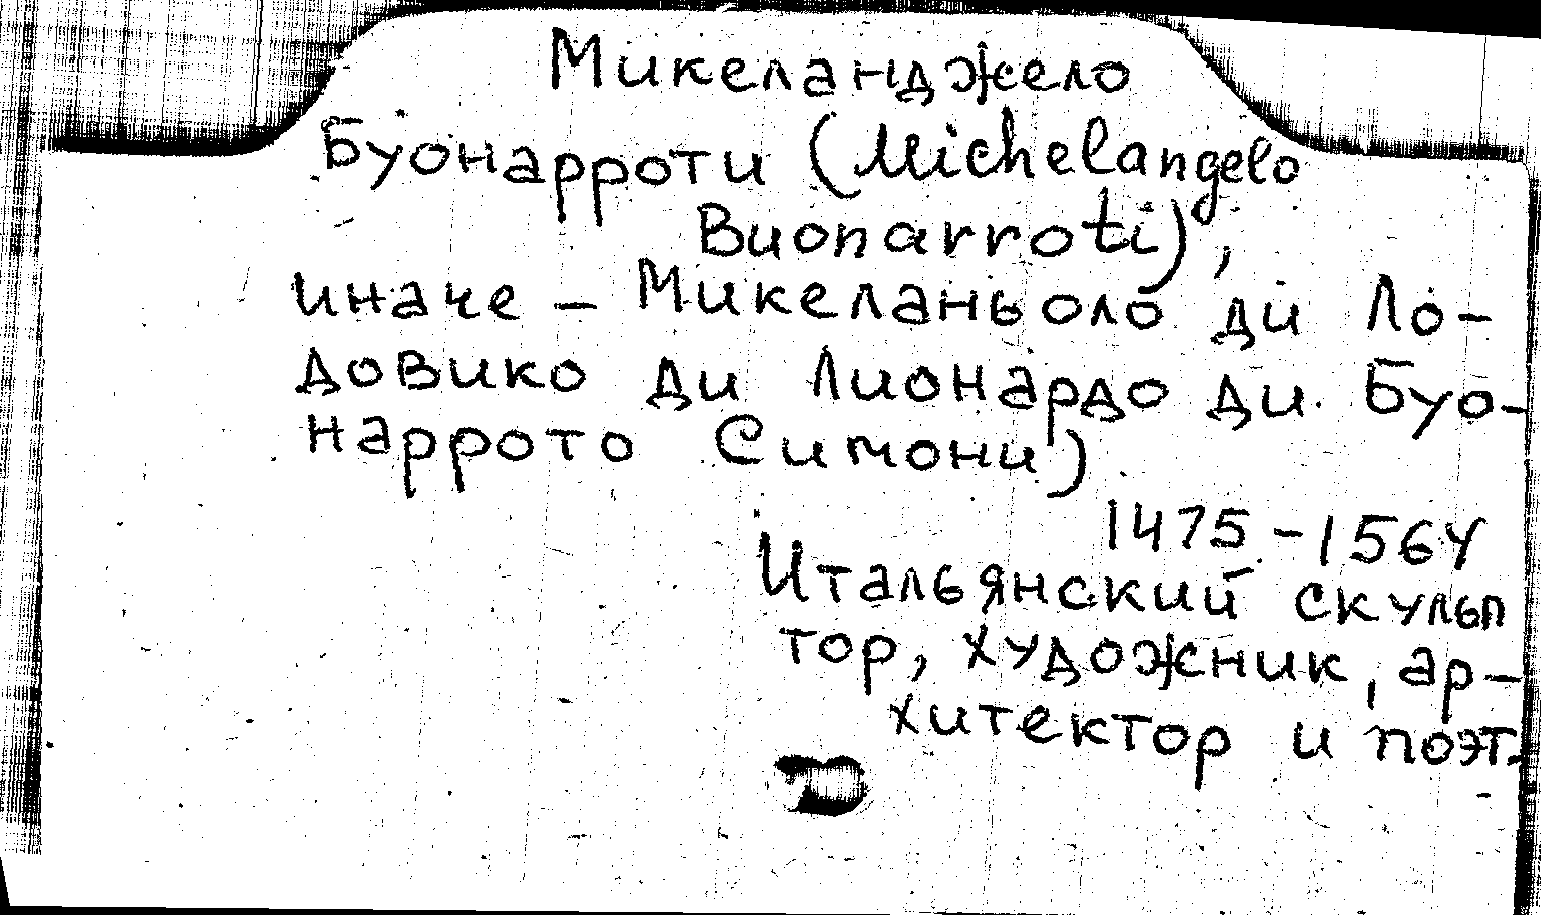 Микеланджело
Буонарроти (Michelangelo
Buonarroti),
иначе – Микеланьоло ди Ло-
довико ди Лионардо ди Буо-
наррото Симони)
1475 – 1564
Итальянский скульп
тор, художник, ар-
хитектор и поэт.